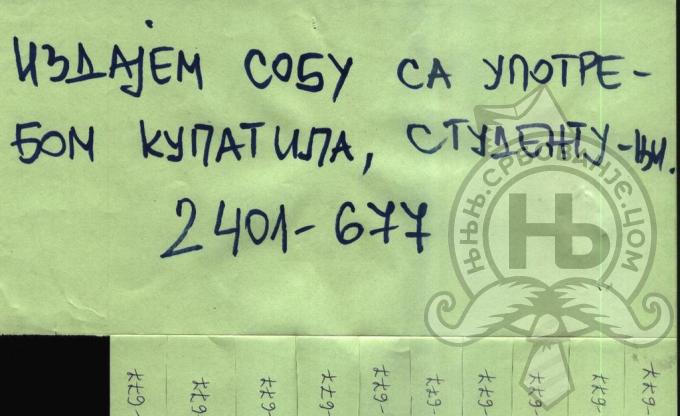 ИЗДАЈЕМ СОБУ СА УПОТРЕ-
БОМ КУПАТИЛА, СТУДЕНТУ-ЊИ.
2401-677
ЊЊЊ.СРБОВАЊЕ.ЦОМ
Њ
-677
677
-677
-677
-677
-677
677
677
677
677